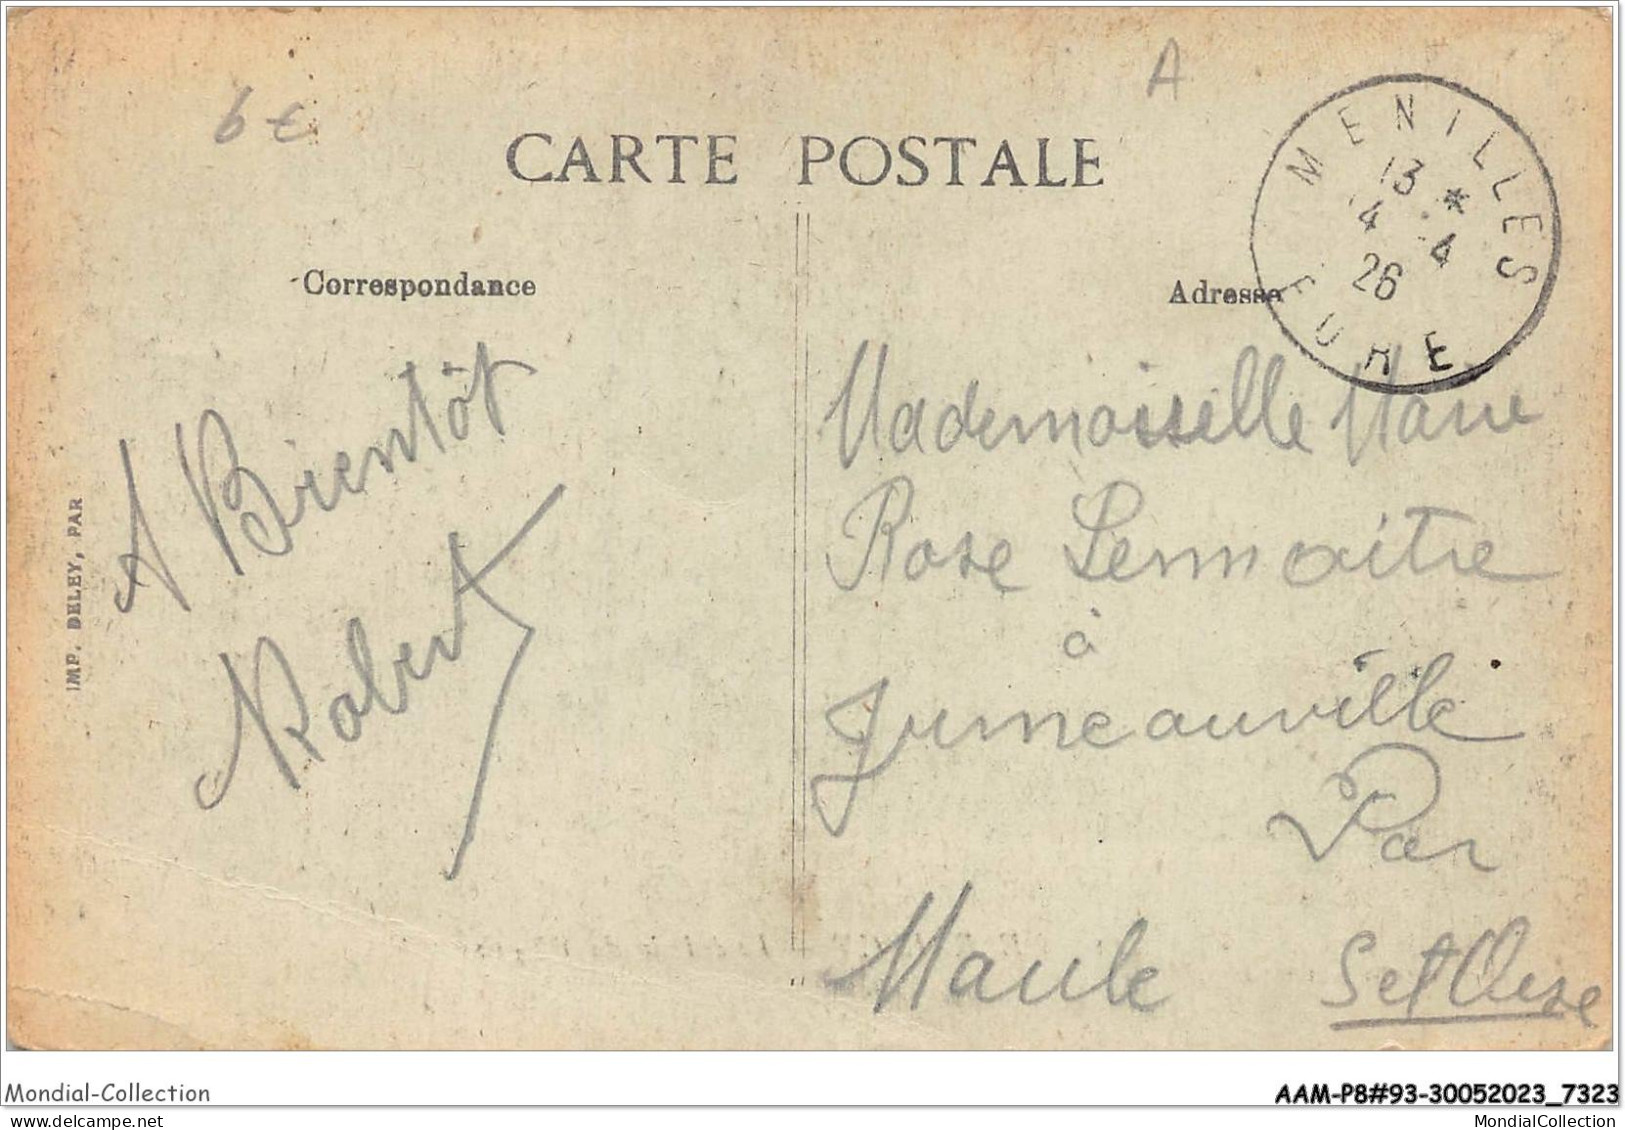 6€
A
CARTE POSTALE
MENILLES
13 *
14 .4
26
EURE
Correspondance
Adresse
A Bientôt
Robert
Mademoiselle Marie
Rose Lemaitre
à
Jumeauville
Par
Maule Set Oise
IMP. DELEY, PAR
Mondial-Collection
AAM-P8#93-30052023_7323
www.delcampe.net
MondialCollection